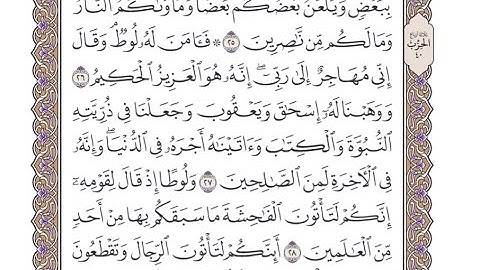 بِبَعْضٍ وَيَلْعَنُ بَعْضُكُم بَعْضًا وَمَأْوَىٰكُمُ ٱلنَّارُ
وَمَا لَكُم مِّن نَّٰصِرِينَ ٢٥ ۞ فَـَٔامَنَ لَهُۥ لُوطٌۘ وَقَالَ
إِنِّي مُهَاجِرٌ إِلَىٰ رَبِّيٓۖ إِنَّهُۥ هُوَ ٱلْعَزِيزُ ٱلْحَكِيمُ ٢٦
وَوَهَبْنَا لَهُۥٓ إِسْحَٰقَ وَيَعْقُوبَ وَجَعَلْنَا فِي ذُرِّيَّتِهِ
ٱلنُّبُوَّةَ وَٱلْكِتَٰبَ وَءَاتَيْنَٰهُ أَجْرَهُۥ فِي ٱلدُّنْيَاۖ وَإِنَّهُۥ
فِي ٱلْـَٔاخِرَةِ لَمِنَ ٱلصَّٰلِحِينَ ٢٧ وَلُوطًا إِذْ قَالَ لِقَوْمِهِۦٓ
إِنَّكُمْ لَتَأْتُونَ ٱلْفَٰحِشَةَ مَا سَبَقَكُم بِهَا مِنْ أَحَدٍ
مِّنَ ٱلْعَٰلَمِينَ ٢٨ أَئِنَّكُمْ لَتَأْتُونَ ٱلرِّجَالَ وَتَقْطَعُونَ